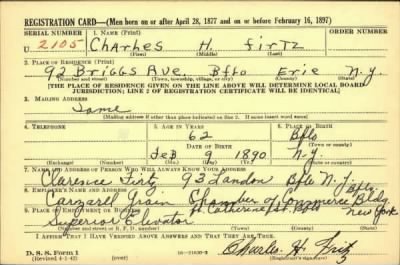 REGISTRATION CARD—(Men born on or after April 28, 1877 and on or before February 16, 1897)
SERIAL NUMBER 1. NAME (Print) ORDER NUMBER
U 2105 Charles H. Firtz
(First) (Middle) (Last)
2. PLACE OF RESIDENCE (Print)
92 Briggs Ave. Bflo Erie N.Y.
(Number and street) (Town, township, village, or city) (County) (State)
[THE PLACE OF RESIDENCE GIVEN ON THE LINE ABOVE WILL DETERMINE LOCAL BOARD
JURISDICTION; LINE 2 OF REGISTRATION CERTIFICATE WILL BE IDENTICAL]
3. MAILING ADDRESS
Same
[Mailing address if other than place indicated on line 2. If same insert word same]
4. TELEPHONE 5. AGE IN YEARS 6. PLACE OF BIRTH
62 Bflo
DATE OF BIRTH (Town or county)
Feb 9 1890 N.Y
(Exchange) (Number) (Mo.) (Day) (Yr.) (State or country)
7. NAME AND ADDRESS OF PERSON WHO WILL ALWAYS KNOW YOUR ADDRESS
Clarence 93 Landon Bflo N.Y.
8. EMPLOYER'S NAME AND ADDRESS
Grain Chamber of Commerce Bldg. Bflo
9. PLACE OF EMPLOYMENT OR BUSINESS St. New York
Superior Elevator
(Number and street or R. F. D. number) (Town) (County) (State)
I AFFIRM THAT I HAVE VERIFIED ABOVE ANSWERS AND THAT THEY ARE TRUE.
D. S. S. Form 1
(Revised 4-1-42) 16—21630-2 Charles H. Firtz